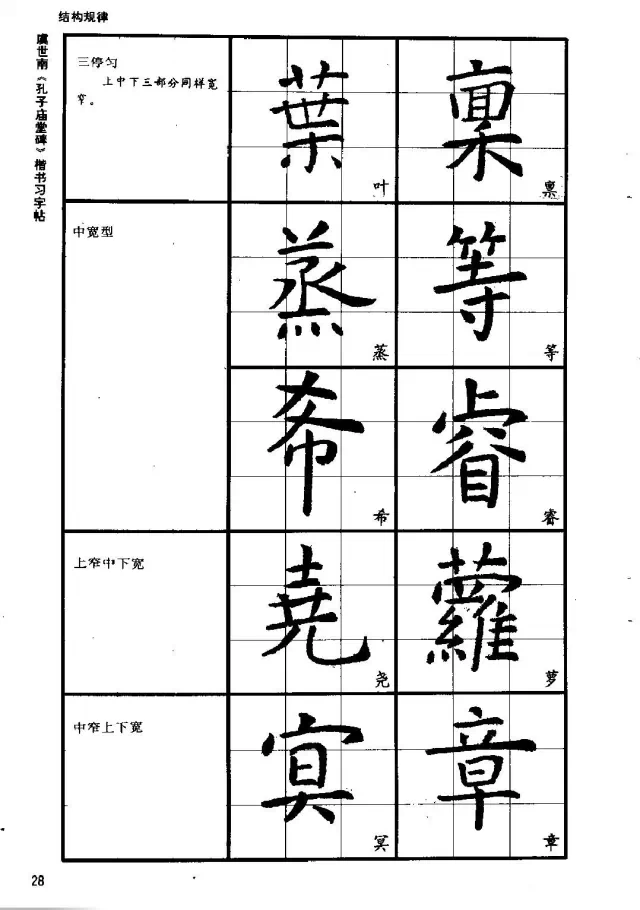 结构规律
虞世南《孔子庙堂碑》楷书习字帖
三停匀
上中下三部分同样宽
窄。
葉
叶
禀
禀
中宽型
蒸
蒸
等
等
希
希
睿
睿
上窄中下宽
堯
尧
蘿
萝
中窄上下宽
冥
冥
章
章
28